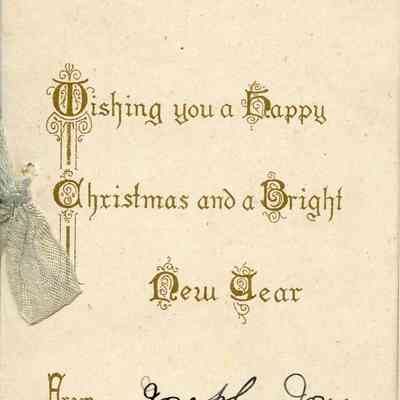 Wishing you a Happy
Christmas and a Bright
New Year
From